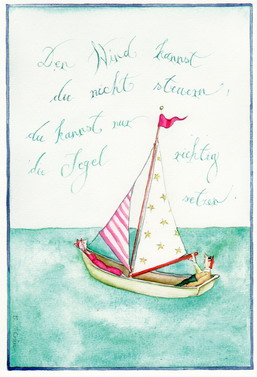 Den Wind kannst
du nicht steuern,
du kannst nur
die Segel richtig
setzen.